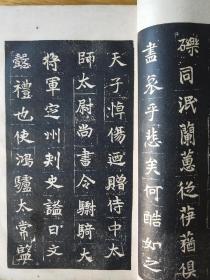 礫同泯蘭蕙從蕕俱
盡哀乎悲矣何酷如之
天子悼傷迴贈侍中太
師太尉尚書令騎大
將軍定州刺史謚曰文
懿禮也使鴻臚太常監